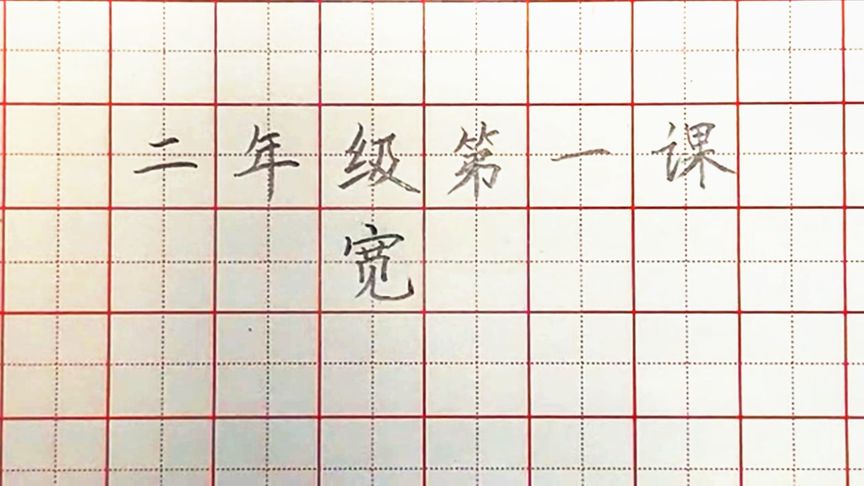 二年级第一课
宽